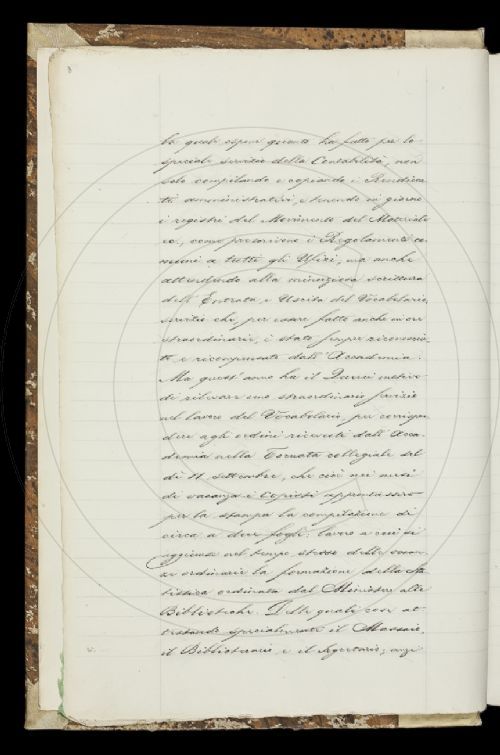 la quale espone quanto ha fatto per lo
speciale servizio della Contabilità, non
solo compilando e copiando i Rendicon-
ti amministrativi, e tenendo in giorno
i registri del Movimento del Materiale
ec., come prescrivono i Regolamenti co-
muni a tutti gli Ufizi, ma anche
attendendo alla minuziosa scrittura
dell'Entrata e Uscita del Vocabolario,
servizio che, per essere fatto anche in ore
straordinarie, è stato sempre riconosciu-
to e ricompensato dall'Accademia.
Ma quest'anno ha il motivo
di rilevare uno straordinario servizio
nel lavoro del Vocabolario, per corrispon-
dere agli ordini ricevuti dall'Acca-
demia nella Tornata collegiale del
dì 11 settembre, che cioè nei mesi
di vacanza i Copisti apprestassero
per la stampa la compilazione di
circa a dieci fogli: lavoro a cui si
aggiunse nel tempo stesso delle vacan-
ze ordinarie la formazione della Sta-
tistica ordinata dal Ministero alle
Biblioteche. Delle quali cose at-
testando specialmente il Massaio,
il Bibliotecario, e il Segretario; anzi